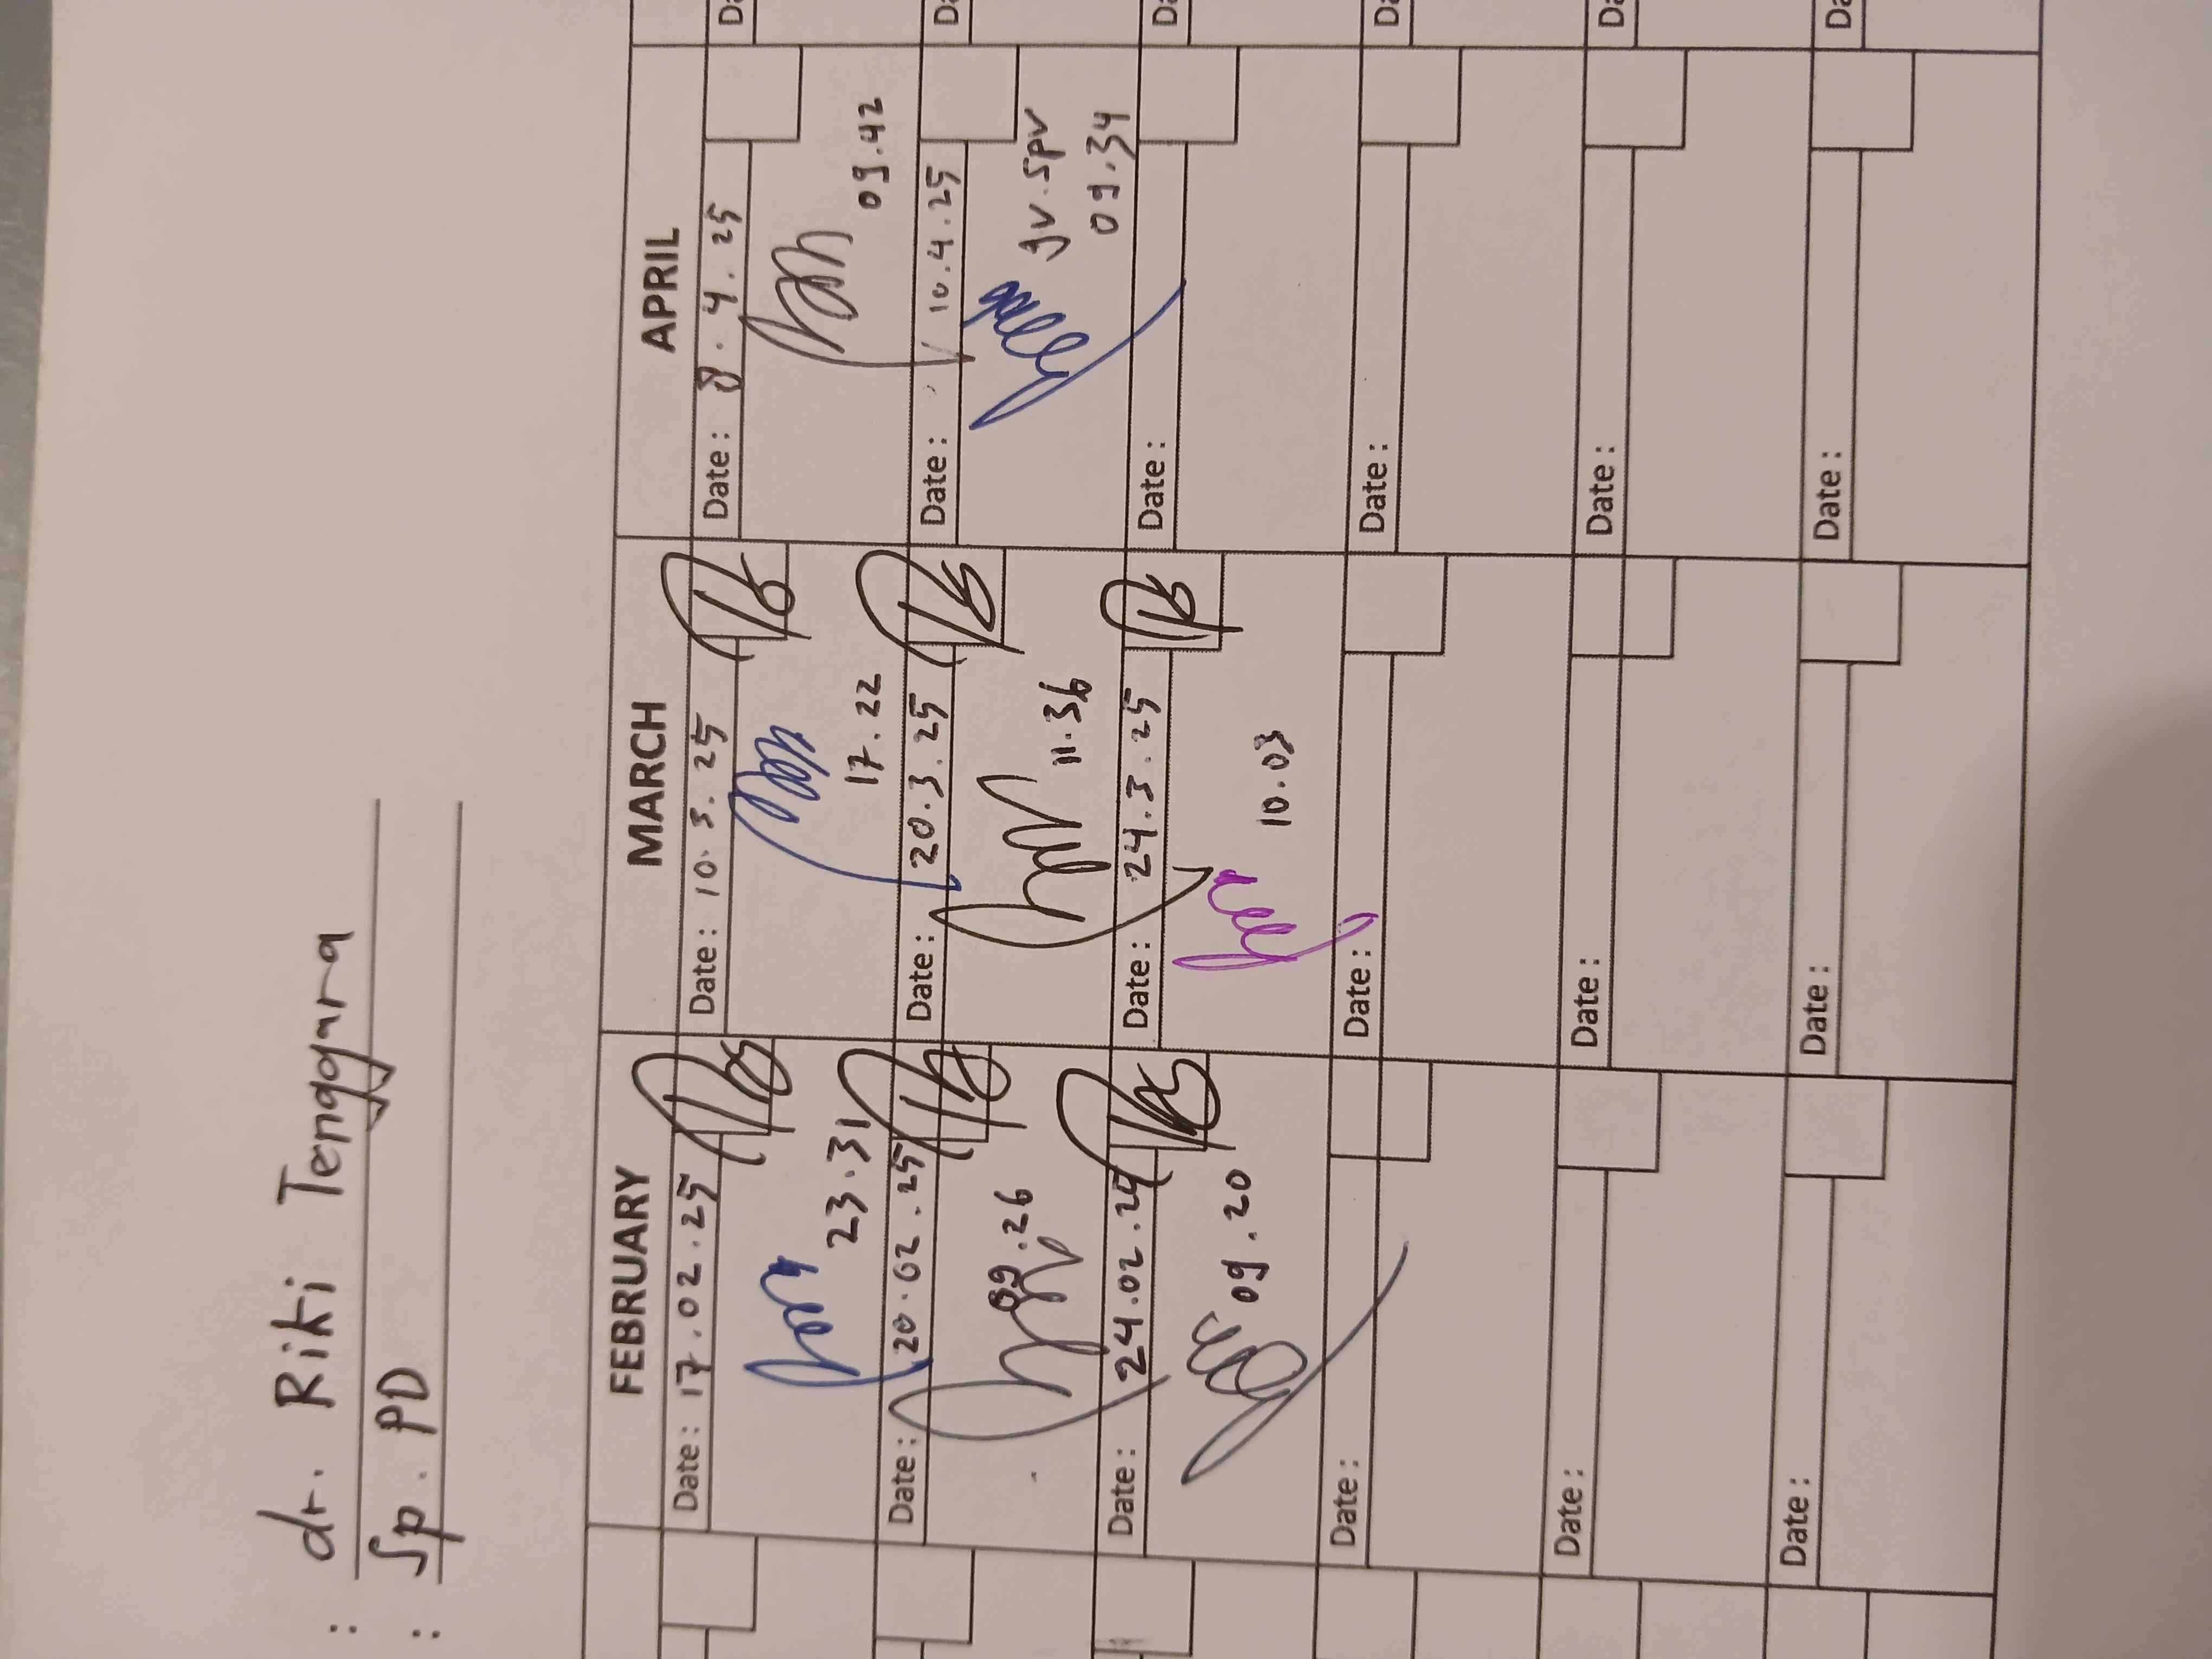 : dr. Riki Tenggara
: Sp. PD
FEBRUARY MARCH APRIL
Date: 17.02.25 Date: 10.3.25 Date: 8.4.25 Da
23.31 17.22 09.42
Date: 20.02.25 Date: 20.3.25 Date: 10.4.25 Da
09.26 11.36 jv.spv
09.34
Date: 24.02.25 Date: 24.3.25 Date: Da
09.20 10.03
Date: Date: Date: Da
Date: Date: Date: Da
Date: Date: Date: Da